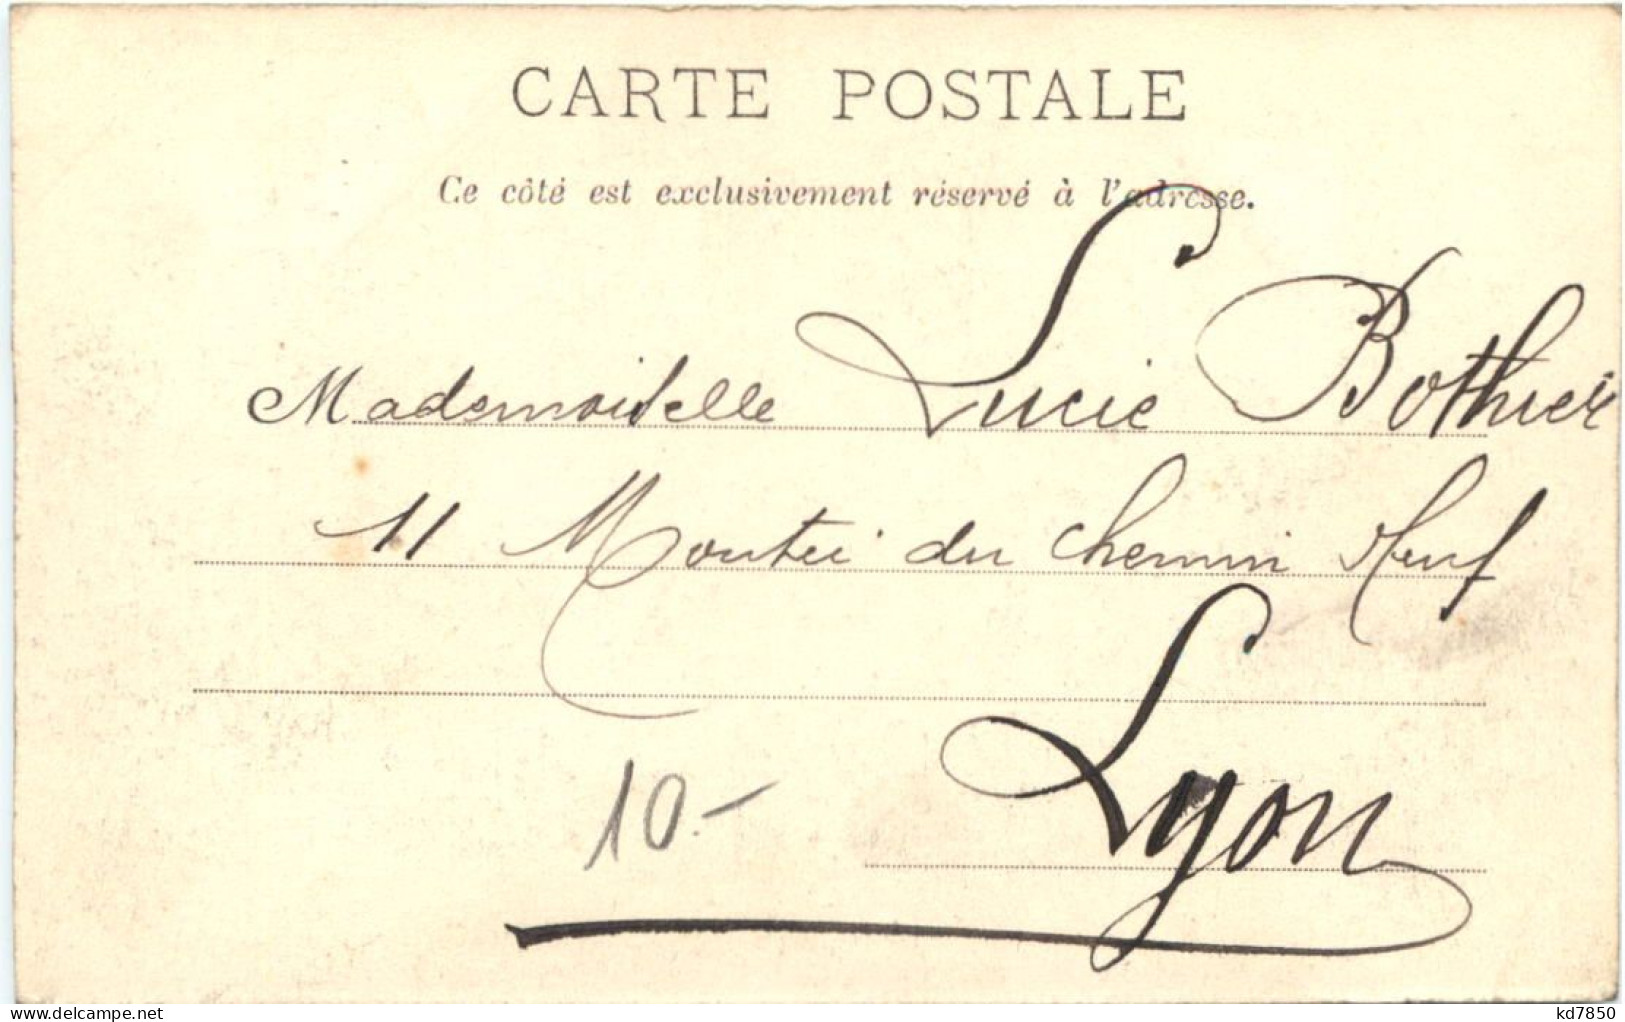 CARTE POSTALE
Ce côté est exclusivement réservé à l'adresse.
Mademoiselle Lucie Bothier
11 Montée du chemin Neuf
Lyon
10.-
delcampe.net
kd7850